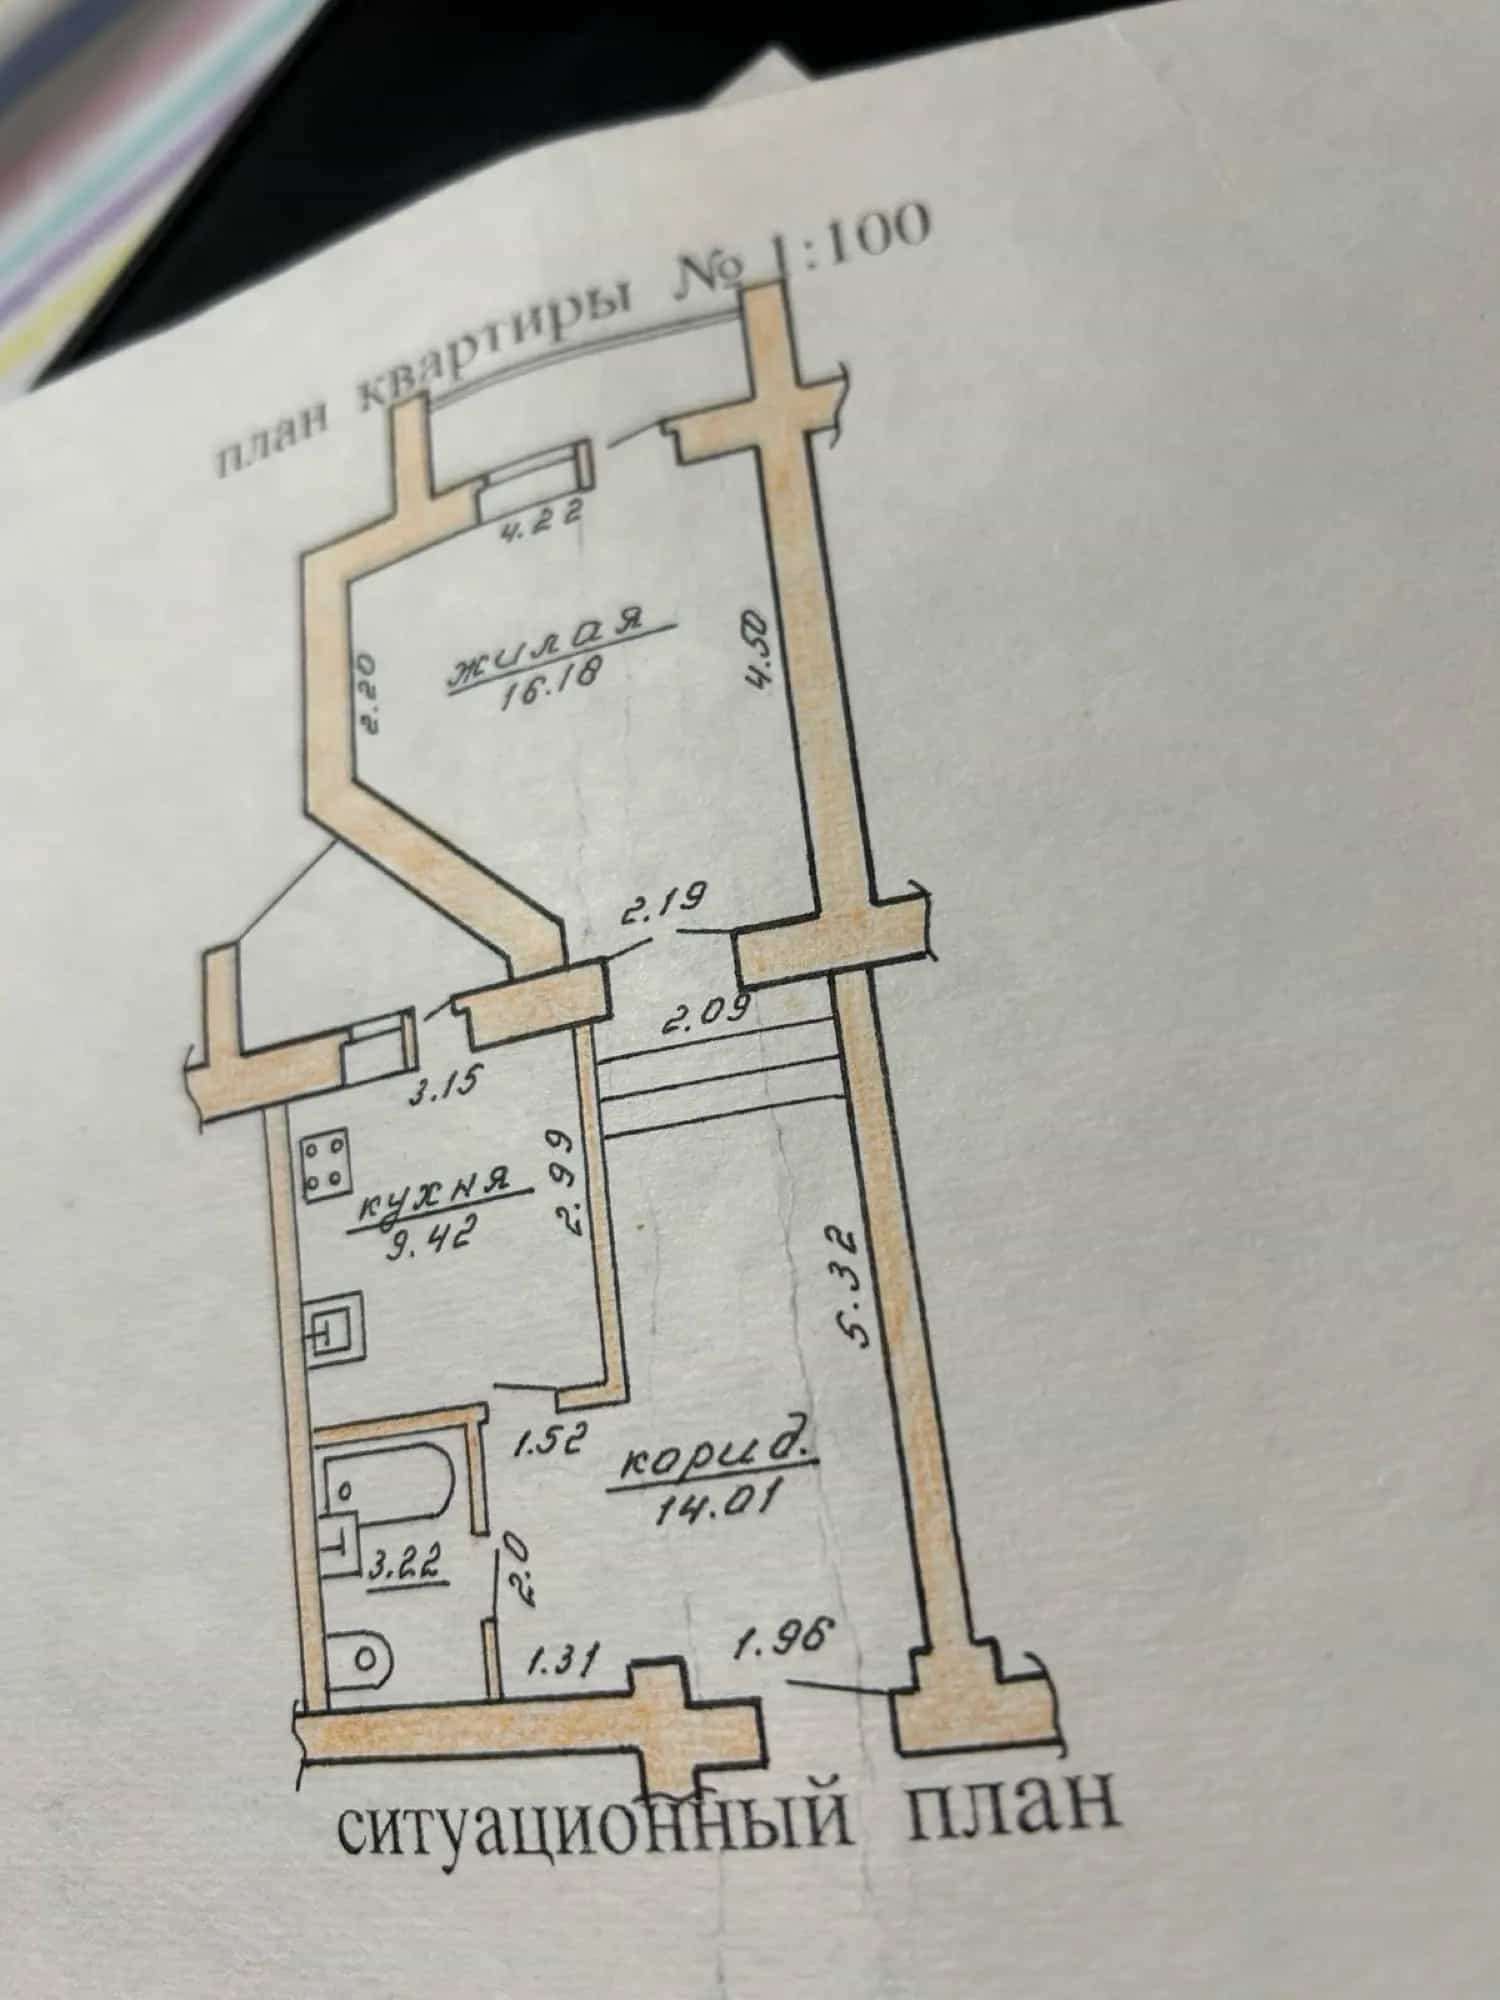 план квартиры № 1:100
4.22
жилая
16.18
2.20
4.50
2.19
2.09
3.15
2.99
кухня
9.42
5.32
1.52
корид.
14.01
3.22
2.0
1.31
1.96
ситуационный план